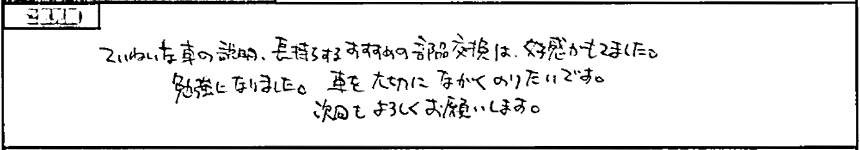 ていねいな車の説明、長持ちするおすすめの部品交換は、好感がもてました。
勉強になりました。車を大切にながくのりたいです。
次回もよろしくお願いします。